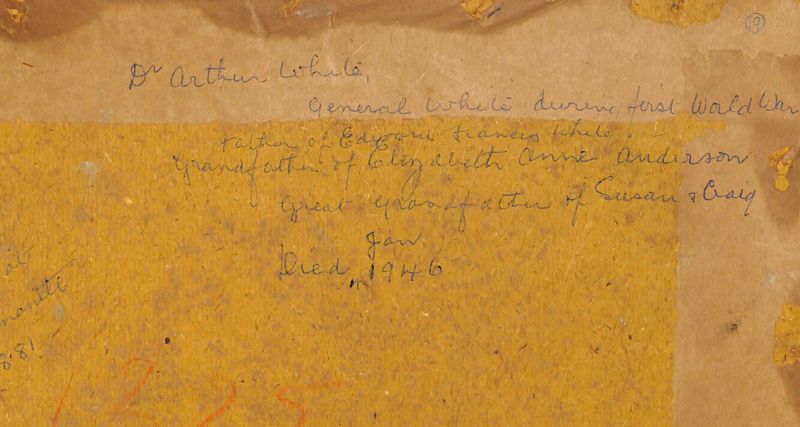 Dr Arthur White,
General White during first World War
Father of Edward Francis White
Grandfather of Elizabeth Anne Anderson
Great Grandfather of Susan & Craig
Jan
Died, 1946
at
8.81
1225